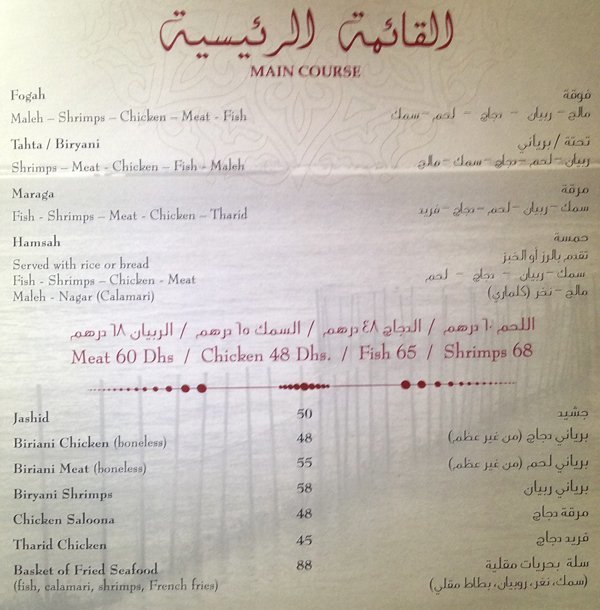 القائمة الرئيسية
MAIN COURSE
Fogah فوقة
Maleh – Shrimps – Chicken – Meat - Fish مالح – ربيان – دجاج – لحم – سمك
Tahta / Biryani تحتة / برياني
Shrimps – Meat - Chicken – Fish - Maleh ربيان – لحم – دجاج – سمك – مالح
Maraga مرقة
Fish - Shrimps – Meat - Chicken – Tharid سمك – ربيان – لحم – دجاج – فريد
Hamsah حمسة
Served with rice or bread تقدم بالرز أو الخبز
Fish - Shrimps – Chicken - Meat سمك – ربيان – دجاج – لحم
Maleh - Nagar (Calamari) مالح – نغر (كلماري)
اللحم ٦٠ درهم / الدجاج ٤٨ درهم / السمك ٦٥ درهم / الربيان ٦٨ درهم
Meat 60 Dhs / Chicken 48 Dhs. / Fish 65 / Shrimps 68
Jashid 50 جشيد
Biriani Chicken (boneless) 48 برياني دجاج (من غير عظم)
Biriani Meat (boneless) 55 برياني لحم (من غير عظم)
Biryani Shrimps 58 برياني ربيان
Chicken Saloona 48 مرقة دجاج
Tharid Chicken 45 فريد دجاج
Basket of Fried Seafood 88 سلة بحريات مقلية
(fish, calamari, shrimps, French fries) (سمك، نغر، روبيان، بطاط مقلي)